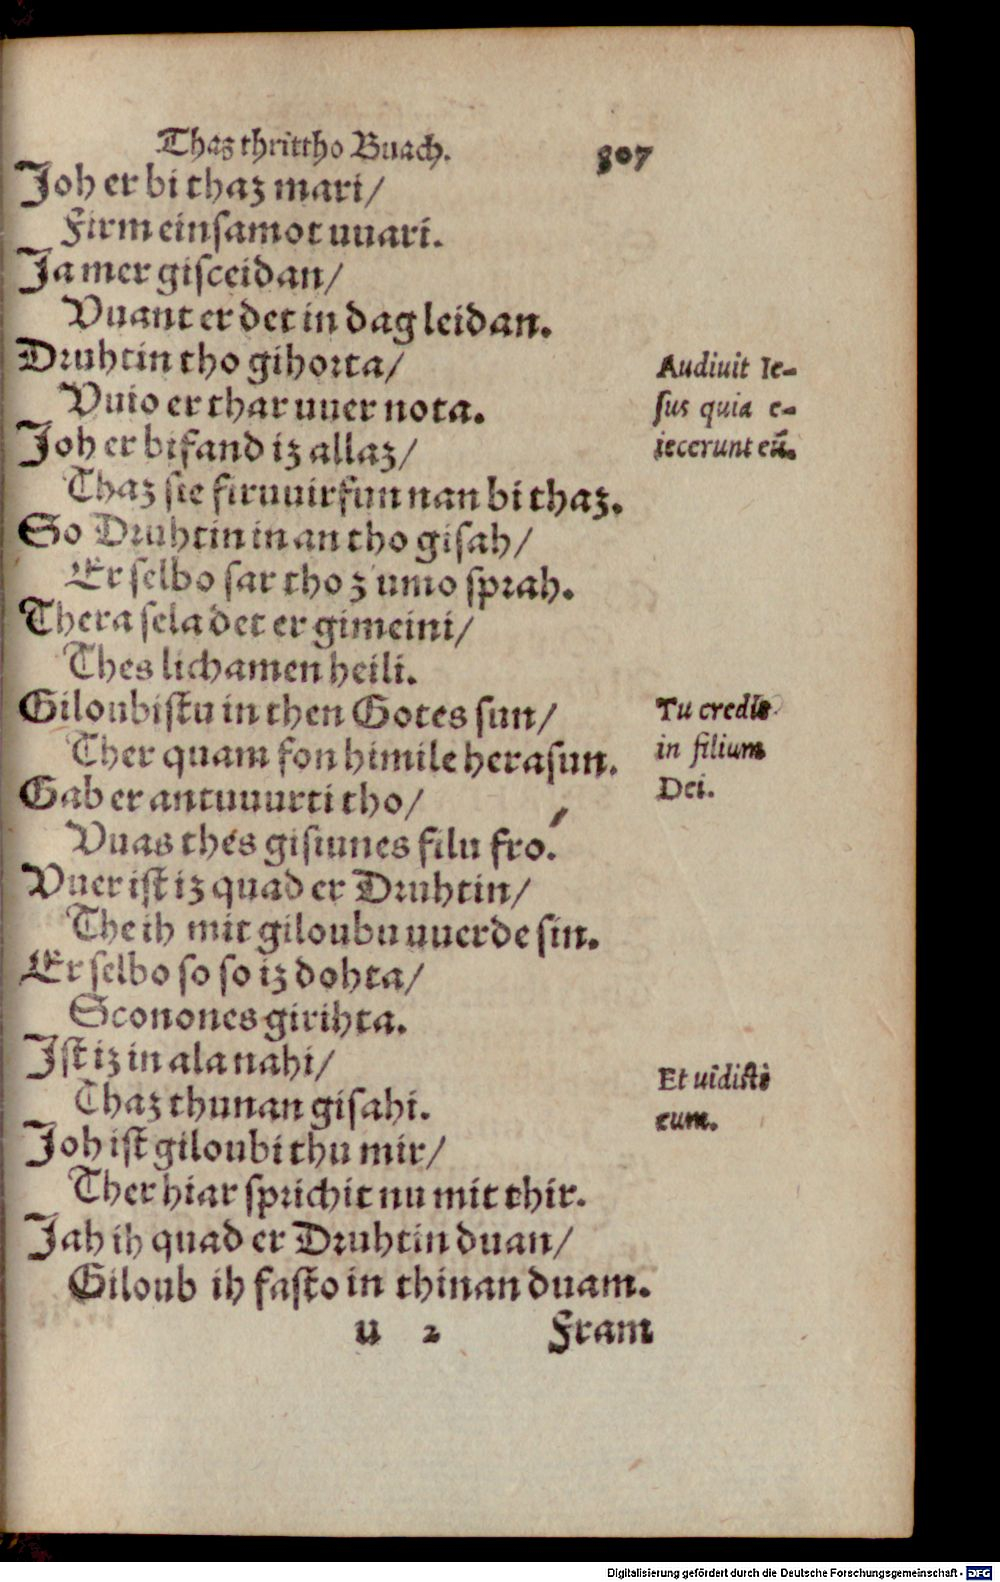 Thaz thrittho Buach. 307
Joh er bi thaz mari/
Firmeinsamot uuari.
Ja mer gisceidan/
Vuant er det in dag leidan.
Druhtin tho gihorta/
Vuio er thar uuer nota.
Joh er bifand iz allaz/
Thaz sie firuuirfun nan bi thaz.
So Druhtin inan tho gisah/
Er selbo sar tho z'umo sprah.
Thera sela det er gimeini/
Thes lichamen heili.
Giloubistu in then Gotes sun/
Ther quam fon himile herasun.
Gab er antuuurti tho/
Vuas thés gisiunes filu fró.
Vuer ist iz quad er Druhtin/
The ih mit giloubu uuerde sin.
Er selbo so so iz dohta/
Scononesgirihta.
Ist iz in ala nahi/
Thaz thu nan gisahi.
Joh ist giloubi thu mir/
Ther hiar sprichit nu mit thir.
Jah ih quad er Druhtin duan/
Giloub ih fasto in thinan duam.
u 2 Fram
Audiuit Ie-
sus quia e-
iecerunt eū.
Tu credis
in filium
Dei.
Et uidisti
eum.
Digitalisierung gefördert durch die Deutsche Forschungsgemeinschaft - DFG